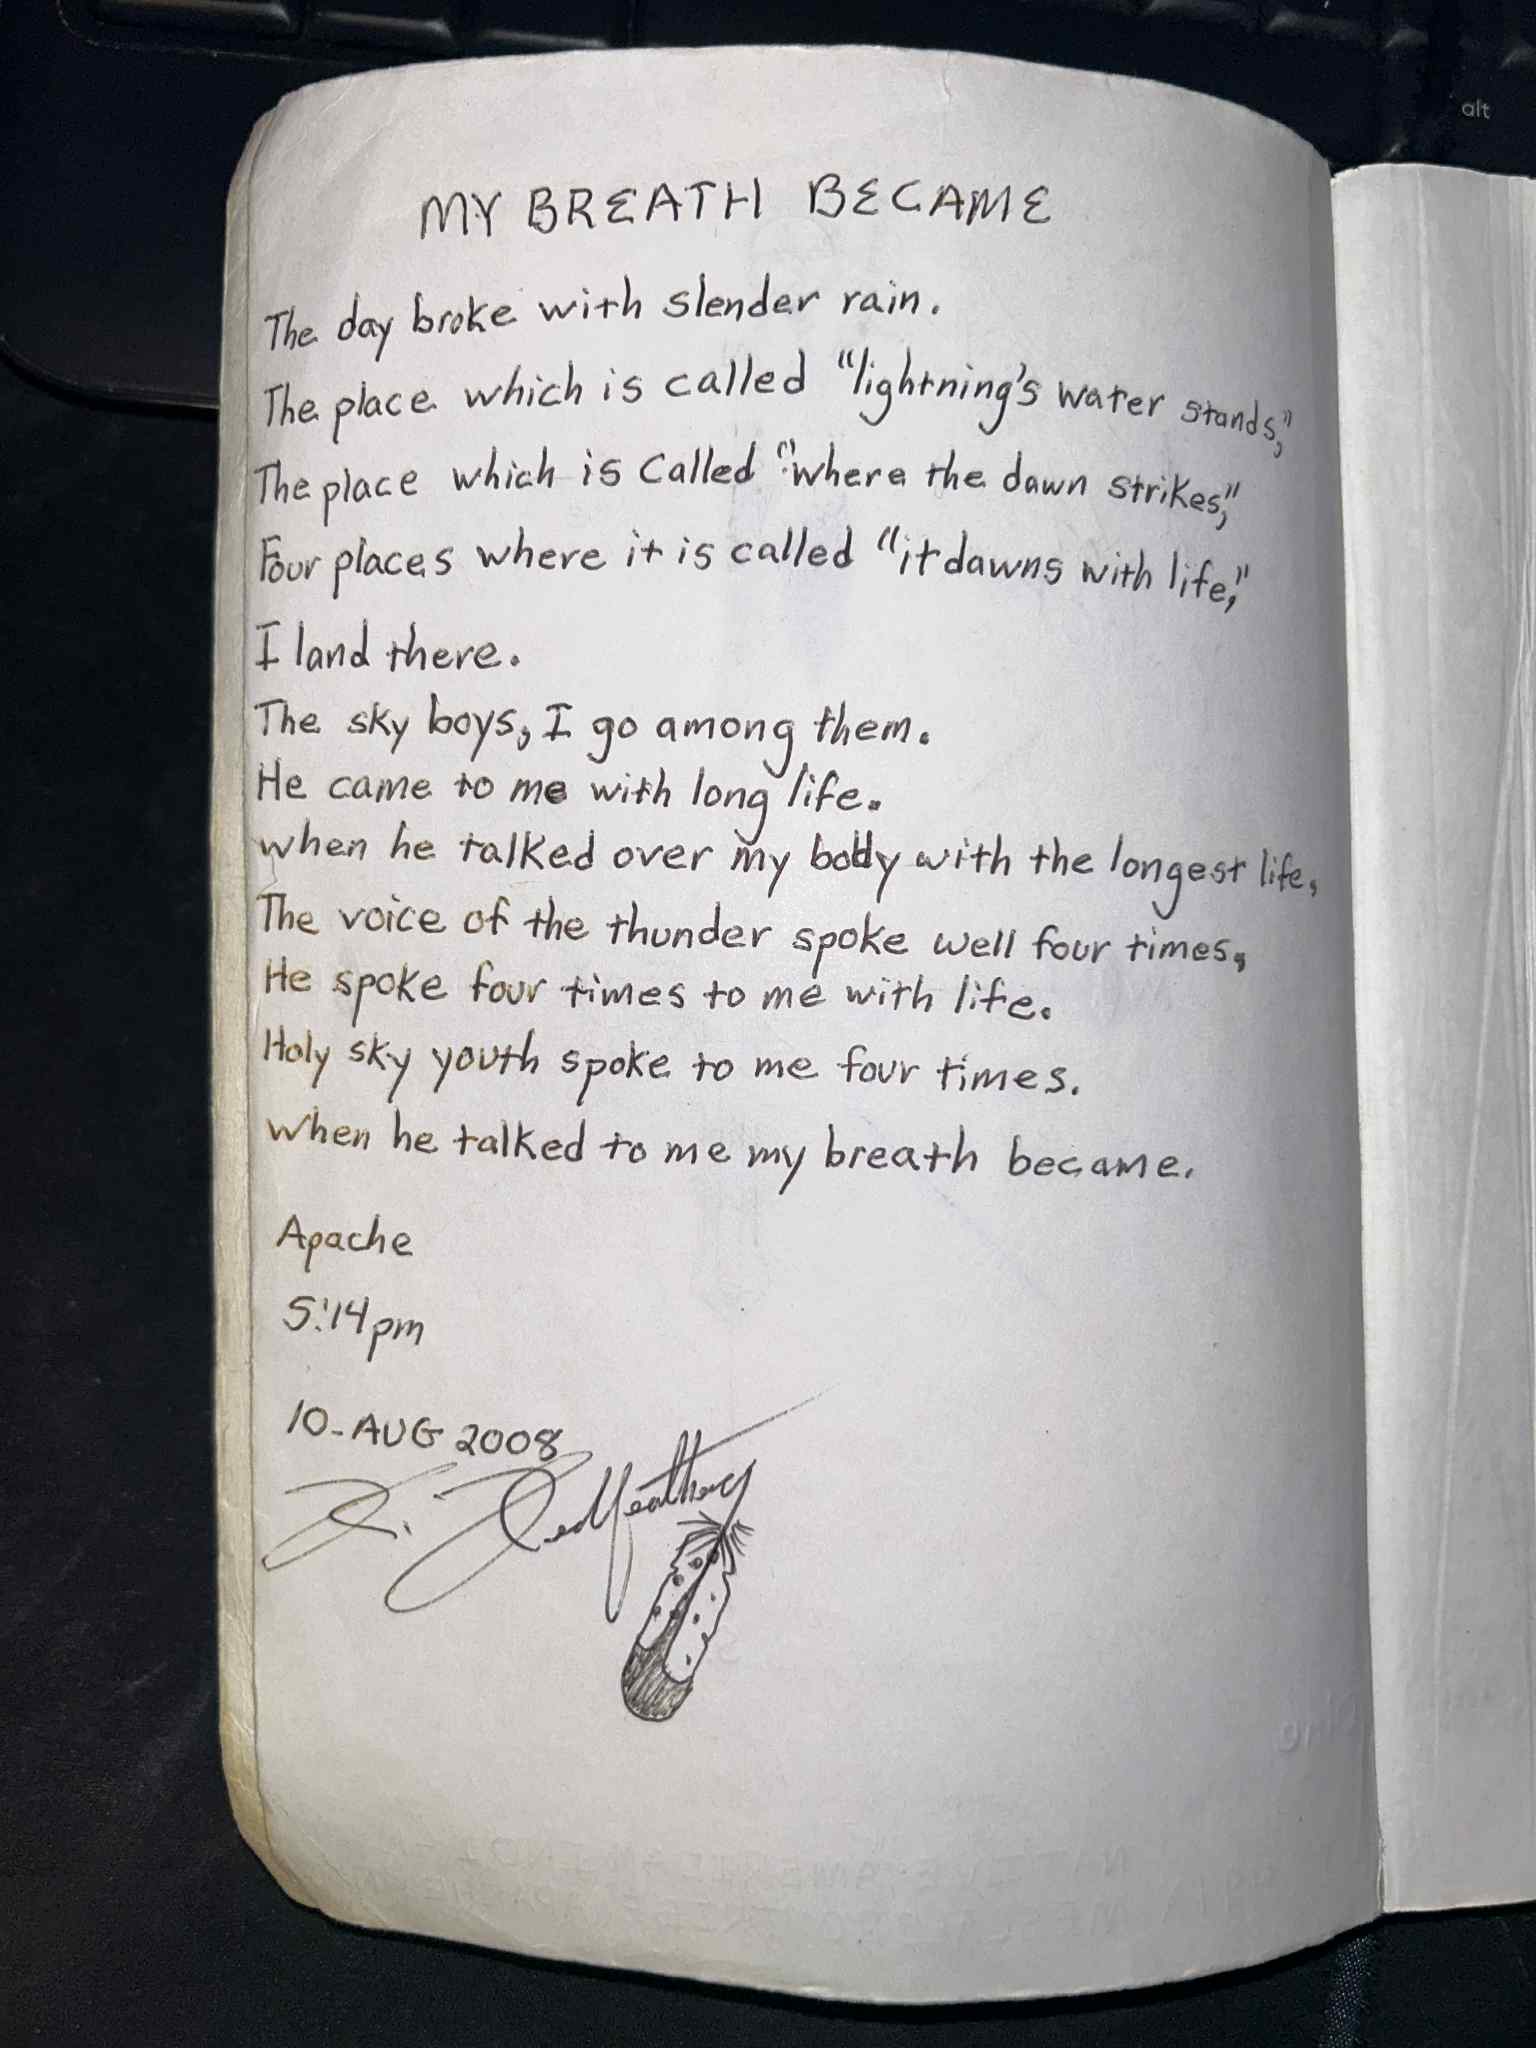 alt
MY BREATH BECAME
The day broke with slender rain.
The place which is called "lightning's water stands,"
The place which is Called "where the dawn strikes,"
Four places where it is called "it dawns with life,"
I land there.
The sky boys, I go among them.
He came to me with long life.
when he talked over my body with the longest life,
The voice of the thunder spoke well four times,
He spoke four times to me with life.
Holy sky youth spoke to me four times.
when he talked to me my breath became.
Apache
5:14pm
10-AUG 2008
Redfeather